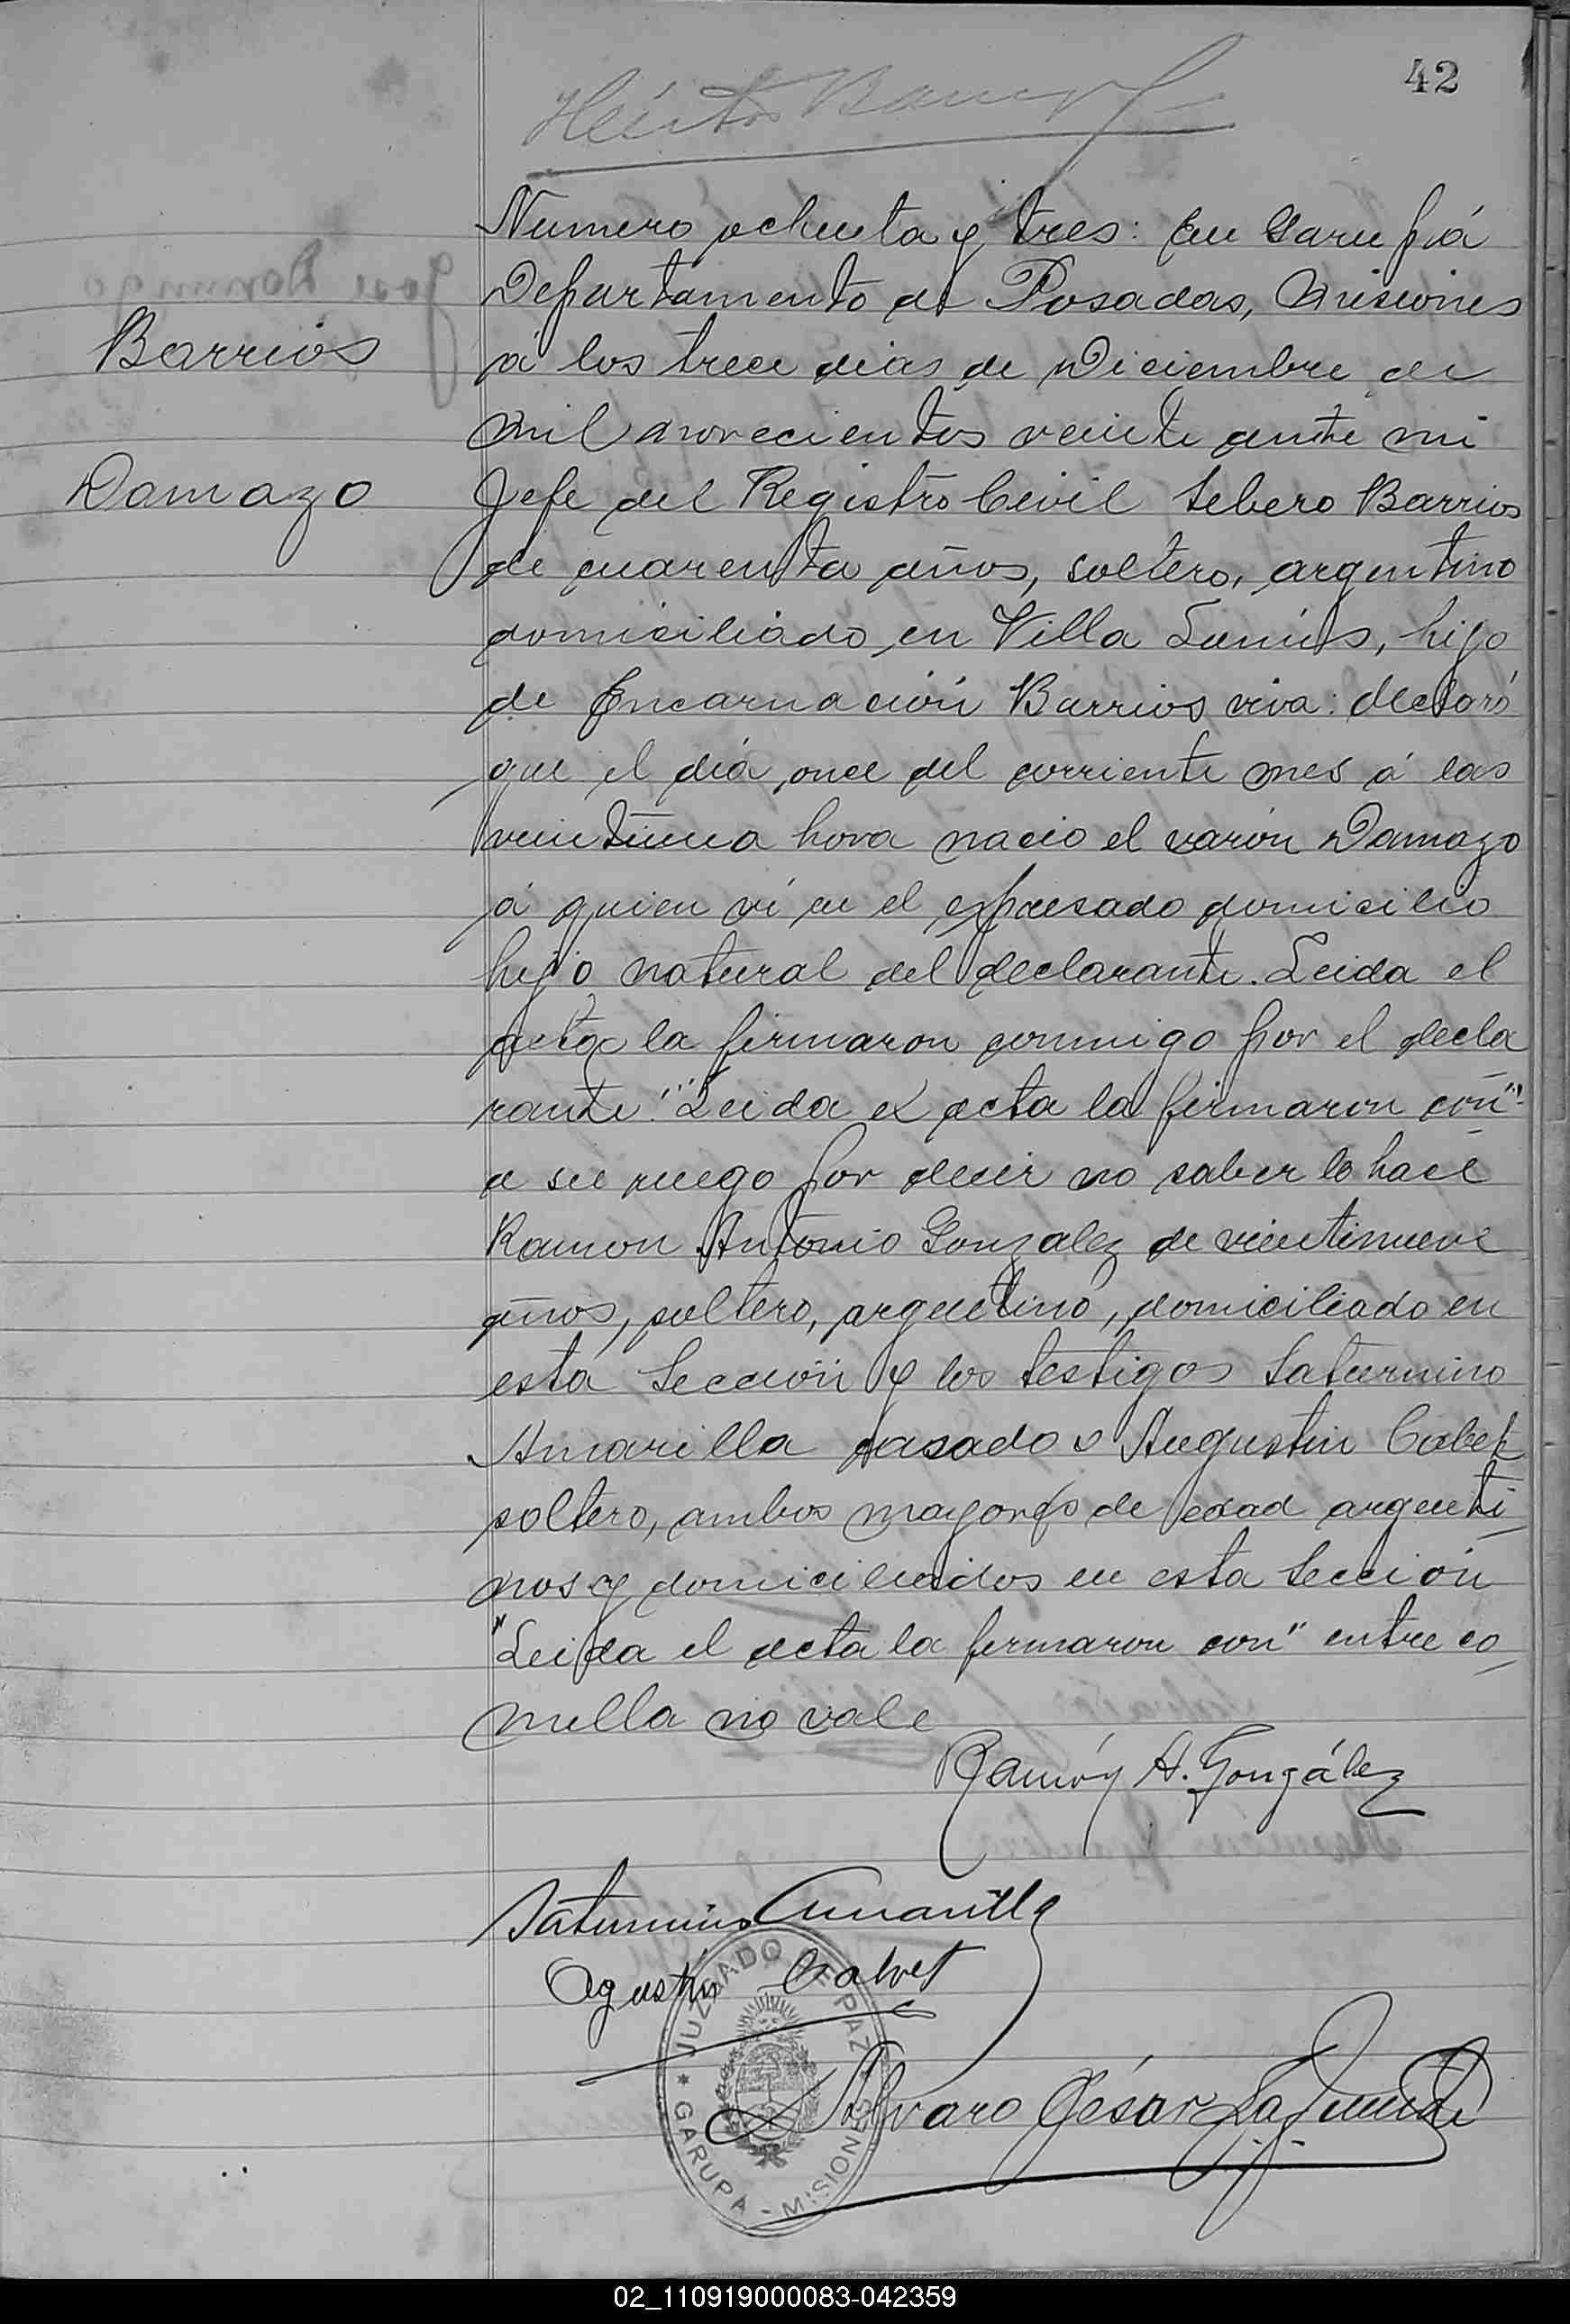 42
Héctor
Numero ochenta y tres: En Garupá
Departamento de Posadas, Misiones
á los trece dias de Diciembre de
mil novecientos veinte ante mi
Jefe del Registro Civil Sebero Barrios
de cuarenta años, soltero, argentino
domiciliado en Villa Lanús, hijo
de Encarnación Barrios viva: declaró
que el diá once del corriente mes á las
veintiuna hora nacio el varón Damazo
á quien ví en el espresado domicilio
hijo natural del declarante. Leida el
acta la firmaron conmigo por el decla
rante: "Leida el acta la firmaron con"
a su ruego por decir no saber lo hace
Ramon Antonio Gonzalez de vientinueve
años, soltero, argentino, domiciliado en
esta Sección y los testigos Saturnino
Amarilla casado y Augustin Calvet
soltero, ambos mayores de edad argenti
nos y domiciliados en esta Sección
"Leida el acta la firmaron con" entre co
milla no vale
Barrios
Damazo
Ramón A. González
Saturnino Amarilla
Agustín Calvet
Alvaro César
JUZGADO DE PAZ
GARUPA - MISIONES
02_110919000083-042359